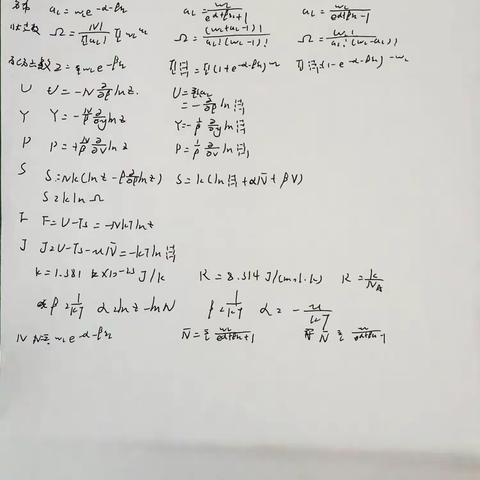 分布 a_l = w_l e^{-α-βε_l}    a_l = \frac{w_l}{e^{α+βε_l}+1}    a_l = \frac{w_l}{e^{α+βε_l}-1}
Ω = \frac{N!}{∏a_l!} ∏ w_l^{a_l}    Ω = \frac{(w_l+a_l-1)!}{a_l!(w_l-1)!}    Ω = \frac{w_l!}{a_l!(w_l-a_l)!}
Z = Σ w_l e^{-βε_l}    ∏Ξ_l = ∏(1+e^{-α-βε_l})^{w_l}    ∏Ξ_l (1-e^{-α-βε_l})^{-w_l}
U    U = -N \frac{∂}{∂β} ln z.    U = Σε_l a_l
= -\frac{∂}{∂β} ln Ξ
Y    Y = -\frac{N}{β} \frac{∂}{∂y} ln z    Y = -\frac{1}{β} \frac{∂}{∂y} ln Ξ
P    P = +\frac{N}{β} \frac{∂}{∂V} ln z    P = \frac{1}{β} \frac{∂}{∂V} ln Ξ
S    S = Nk(ln z - β\frac{∂}{∂β} ln z)    S = k(ln Ξ + αN̄ + βU)
S = k ln Ω
F    F = U-TS = -NkT ln z
J    J = U-TS-uN̄ = -kT ln Ξ
k = 1.381 × 10^{-23} J/k    R = 8.314 J/(mol·k)    k = \frac{R}{N_A}
β = \frac{1}{kT}    α = ln z - ln N    β = \frac{1}{kT}    α = -\frac{u}{kT}
N    N = Σ w_l e^{-α-βε_l}    N̄ = Σ \frac{w_l}{e^{α+βε_l}+1}    N̄ = Σ \frac{w_l}{e^{α+βε_l}-1}